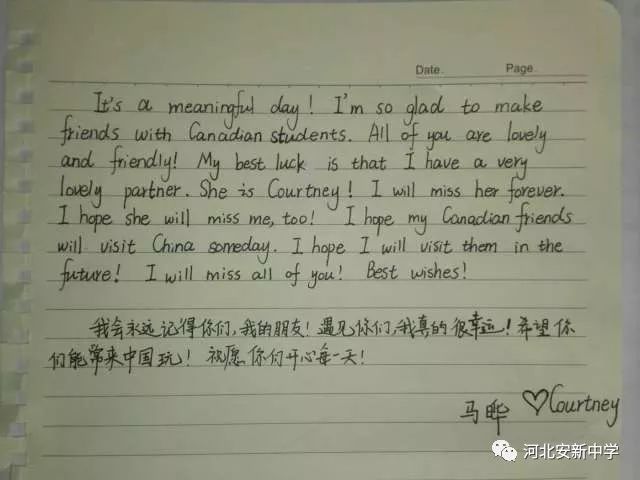 Date.
Page.
It's a meaningful day! I'm so glad to make
friends with Canadian students. All of you are lovely
and friendly! My best luck is that I have a very
lovely partner. She is Courtney! I will miss her forever.
I hope she will miss me, too! I hope my Canadian friends
will visit China someday. I hope I will visit them in the
future! I will miss all of you! Best wishes!
我会永远记得你们,我的朋友!遇见你们,我真的很幸运!希望你
们能常来中国玩!祝愿你们开心每一天!
马晔 ♡Courtney
河北安新中学